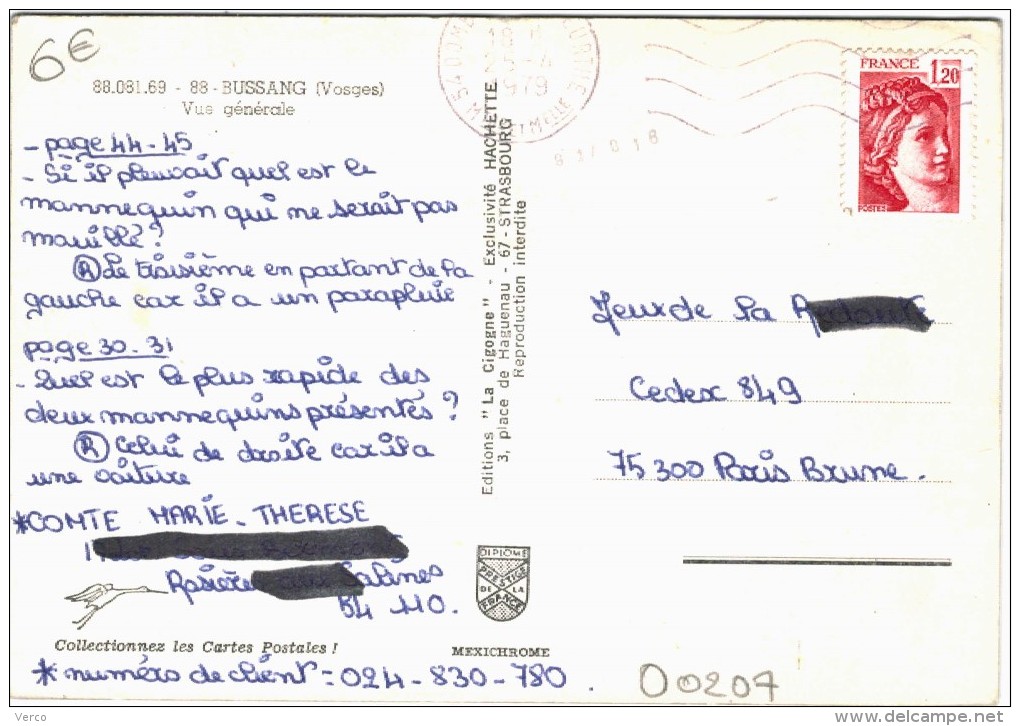 6€
88.081.69 - 88 - BUSSANG (Vosges)
Vue générale
- page 44-45
- Si il pleuvait quel est le
mannequin qui ne serait pas
mouillé?
R Le troisième en partant de la
gauche car il a un parapluie
page 30-31
- Quel est le plus rapide des
deux mannequins présentés?
R Celui de droite car il a
une voiture
*COMTE MARIE-THERESE
Rosière aux Salines
54 110.
Collectionnez les Cartes Postales !
MEXICHROME
* numéro de client = 024-830-780.
Editions "La Cigogne" - Exclusivité HACHETTE
3, place de Haguenau - 67 - STRASBOURG
Reproduction interdite
DIPLOME
PRESTIGE
DE LA
FRANCE
1979
FRANCE 1,20
POSTES
Jeux de la
Cedex 849
75300 Paris Brune.
00207
Verco
www.delcampe.net